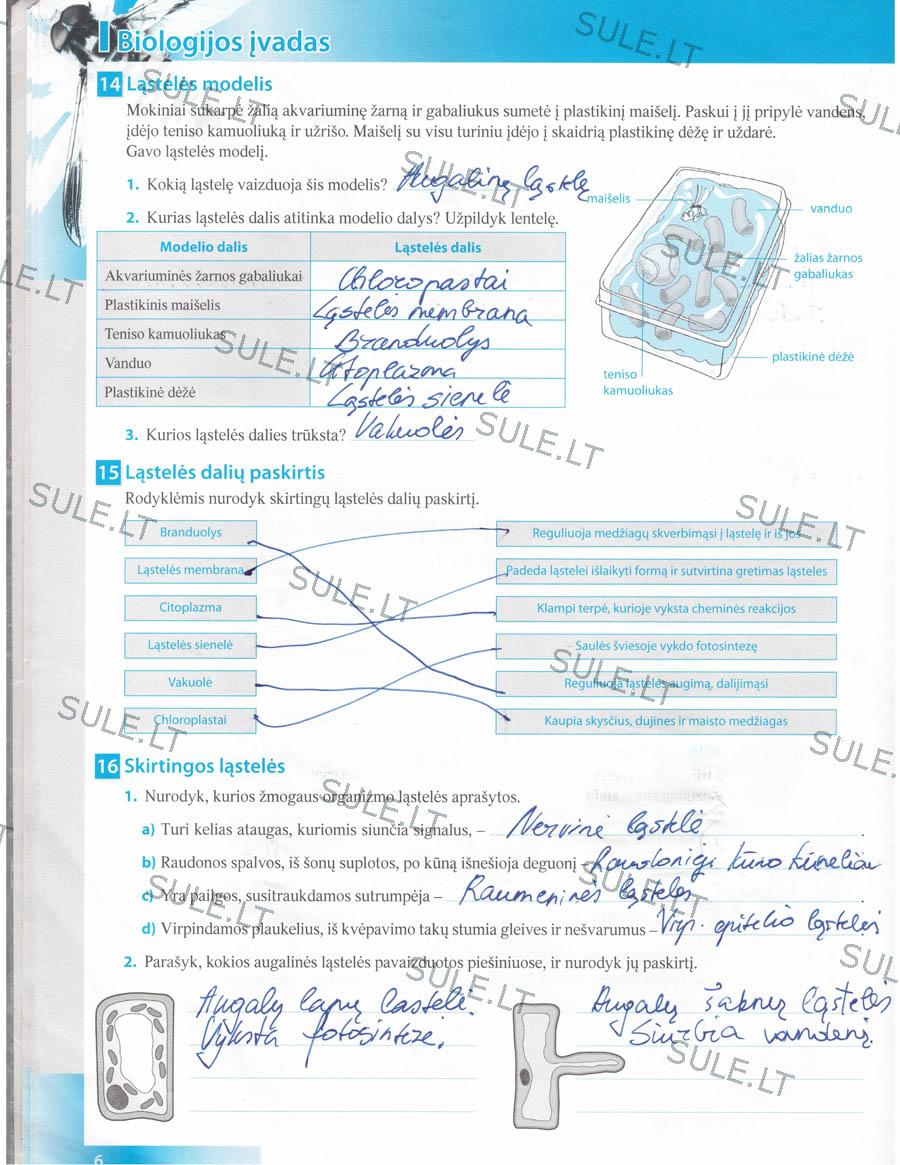 Biologijos įvadas
14 Ląstelės modelis
Mokiniai sukarpė žalią akvariuminę žarną ir gabaliukus sumetė į plastikinį maišelį. Paskui į jį pripylė vandens,
įdėjo teniso kamuoliuką ir užrišo. Maišelį su visu turiniu įdėjo į skaidrią plastikinę dėžę ir uždarė.
Gavo ląstelės modelį.
1. Kokią ląstelę vaizduoja šis modelis? Augalinę ląstelę
2. Kurias ląstelės dalis atitinka modelio dalys? Užpildyk lentelę.
Modelio dalis Ląstelės dalis
Akvariuminės žarnos gabaliukai Chloropastai
Plastikinis maišelis Ląstelės membrana
Teniso kamuoliukas Branduolys
Vanduo Citoplazma
Plastikinė dėžė Ląstelės sienelė
maišelis
vanduo
žalias žarnos
gabaliukas
plastikinė dėžė
teniso
kamuoliukas
3. Kurios ląstelės dalies trūksta? Vakuolės
15 Ląstelės dalių paskirtis
Rodyklėmis nurodyk skirtingų ląstelės dalių paskirtį.
Branduolys Reguliuoja medžiagų skverbimąsi į ląstelę ir iš jos
Ląstelės membrana Padeda ląstelei išlaikyti formą ir sutvirtina gretimas ląsteles
Citoplazma Klampi terpė, kurioje vyksta cheminės reakcijos
Ląstelės sienelė Saulės šviesoje vykdo fotosintezę
Vakuolė Reguliuoja ląstelės augimą, dalijimąsi
Chloroplastai Kaupia skysčius, dujines ir maisto medžiagas
16 Skirtingos ląstelės
1. Nurodyk, kurios žmogaus organizmo ląstelės aprašytos.
a) Turi kelias ataugas, kuriomis siunčia signalus, – Nervinė ląstelė
b) Raudonos spalvos, iš šonų suplotos, po kūną išnešioja deguonį – kūno kūneliai
c) Yra pailgos, susitraukdamos sutrumpėja – Raumeninės ląstelės
d) Virpindamos plaukelius, iš kvėpavimo takų stumia gleives ir nešvarumus – Virp. epitelio ląstelės
2. Parašyk, kokios augalinės ląstelės pavaizduotos piešiniuose, ir nurodyk jų paskirtį.
Augalų lapų lastelė.
Vyksta fotosintezė.
Augalų šaknų ląstelės
Siurbia vandenį.
6
SULE.LT